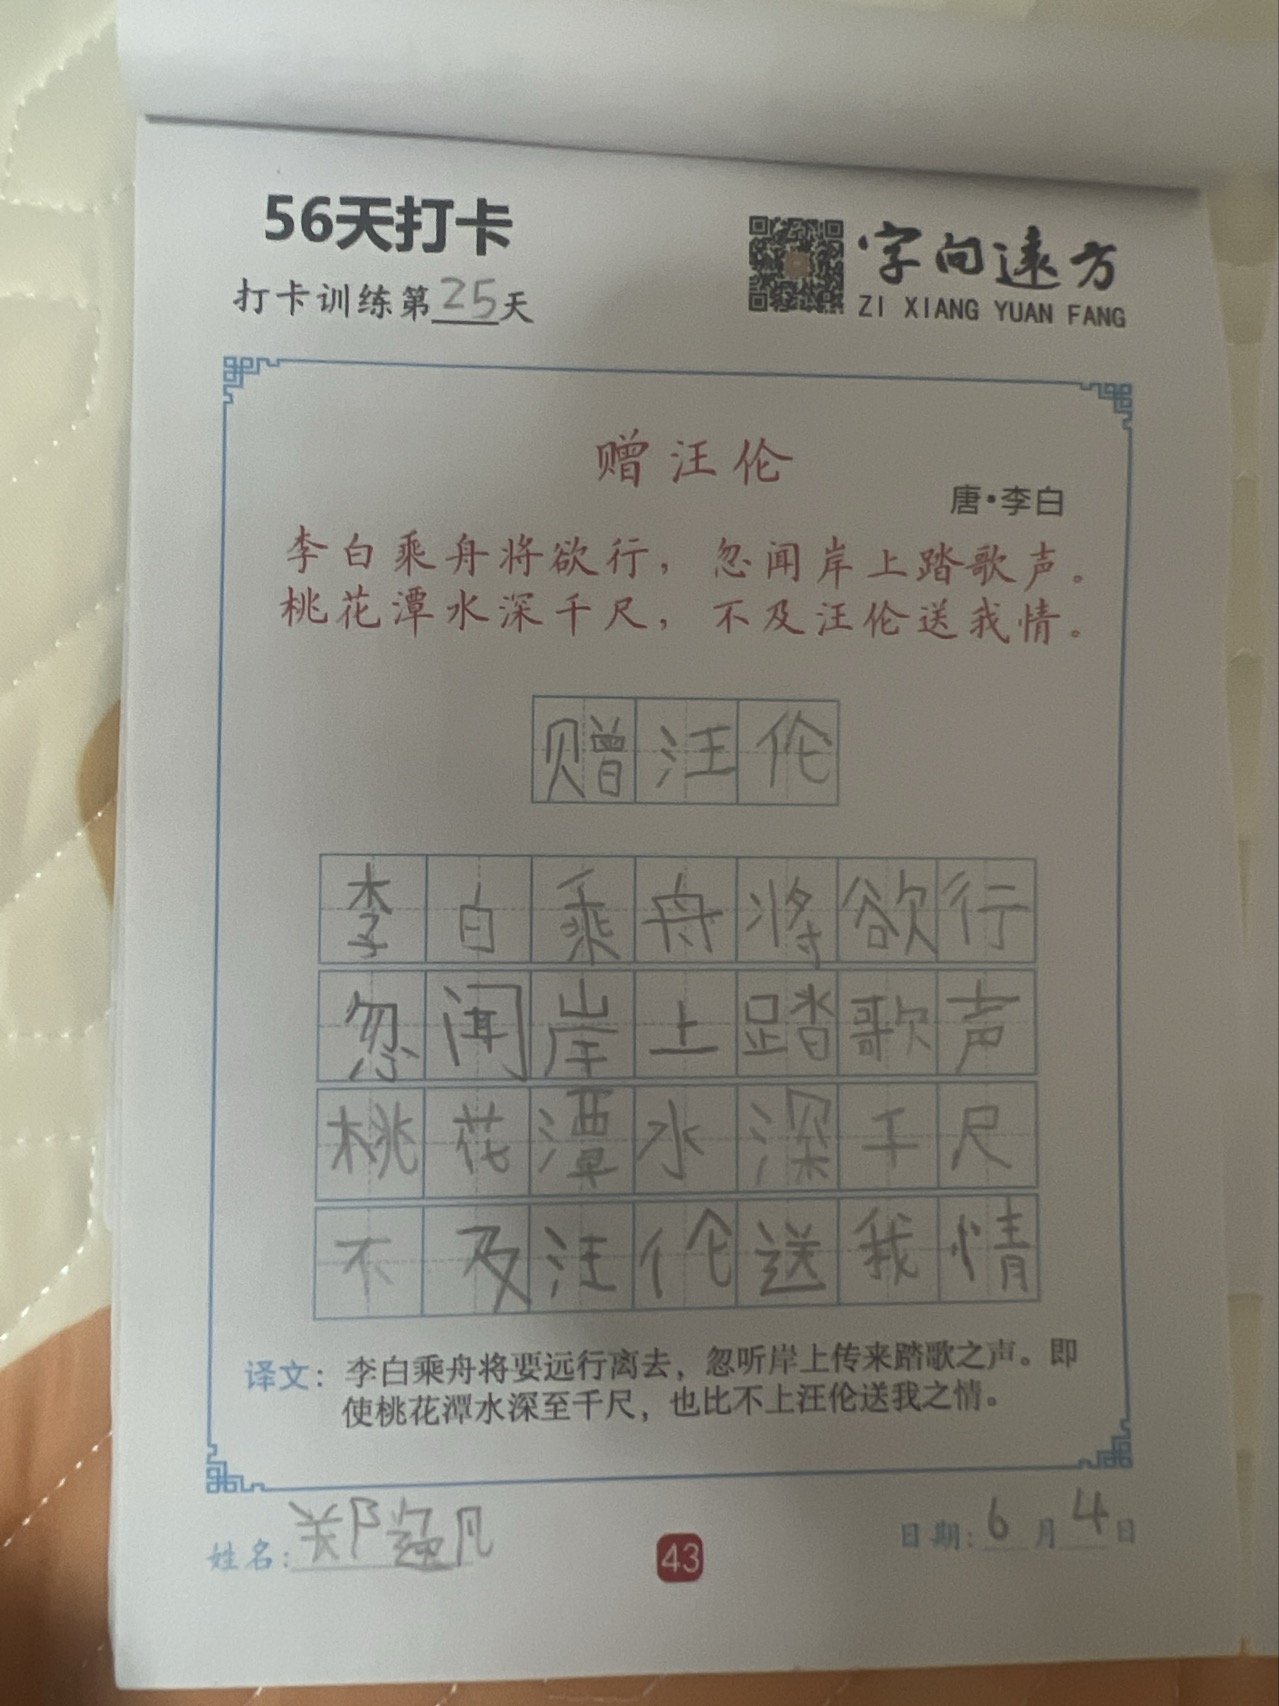 56天打卡
打卡训练第25天
字向远方
ZI XIANG YUAN FANG
赠汪伦
唐·李白
李白乘舟将欲行，忽闻岸上踏歌声。
桃花潭水深千尺，不及汪伦送我情。
赠汪伦
李白乘舟将欲行
忽闻岸上踏歌声
桃花潭水深千尺
不及汪伦送我情
译文：李白乘舟将要远行离去，忽听岸上传来踏歌之声。即
使桃花潭水深至千尺，也比不上汪伦送我之情。
姓名：郑 凡
43
日期：6月4日